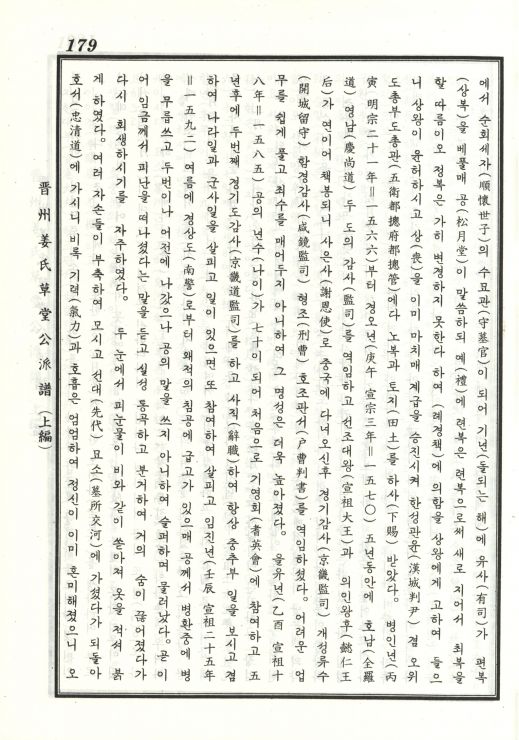 179
에서 순회세자(順懷世子)의 수묘관(守墓官)이 되어 기년(돌되는 해)에 유사(有司)가 편복
(상복)을 베풀매 공(松月堂)이 말씀하되 예(禮)에 련복은 련복으로써 새로 지어서 최복을
할 따름이오 정복은 가히 변경하지 못한다 하여 (례경책)에 의함을 상왕에게 고하여 들으
니 상왕이 윤허하시고 상(喪)을 이미 마치매 계급을 승진시켜 한성판윤(漢城判尹) 겸 오위
도총부도총관(五衛都摠府都摠管)에다 노복과 토지(田土)를 하사(下賜) 받았다. 병인년(丙
寅 明宗二十一年=一五六六)부터 경오년(庚午 宣宗三年=一五七〇) 五년동안에 호남(全羅
道) 영남(慶尙道) 두 도의 감사(監司)를 역임하고 선조대왕(宣祖大王)과 의인왕후(懿仁王
后)가 연이어 책봉되니 사은사(謝恩使)로 중국에 다녀오신후 경기감사(京畿監司) 개성류수
(開城留守) 함경감사(咸鏡監司) 형조(刑曹) 호조판서(戶曹判書)를 역임하셨다. 어려운 업
무를 쉽게 풀고 죄수를 매어두지 아니하여 그 명성은 더욱 높아졌다. 을유년(乙酉 宣祖十
八年=一五八五) 공의 년수(나이)가 七十이 되어 처음으로 기영회(耆英會)에 참여하고 五
년후에 두번째 경기도감사(京畿道監司)를 하고 사직(辭職)하여 항상 중추부 일을 보시고 겸
하여 나라일과 군사일을 살피고 일이 있으면 또 참여하여 살피고 임진년(壬辰 宣祖二十五年
=一五九二) 여름에 경상도(南警)로부터 왜적의 침공에 급고가 있으매 공께서 병환중에 병
을 무릅쓰고 두번이나 어전에 나갔으나 공의 말을 쓰지 아니하여 슬퍼하며 물러났다. 곧이
어 임금께서 피난을 떠나셨다는 말을 듣고 실성 통곡하고 분거하여 거의 숨이 끊어졌다가
다시 회생하시기를 자주하였다. 두 눈에서 피눈물이 비와 같이 쏟아져 옷을 적셔 붉
게 하였다. 여러 자손들이 부축하여 모시고 선대(先代) 묘소(墓所交河)에 가셨다가 되돌아
호서(忠清道)에 가시니 비록 기력(氣力)과 호흡은 엄엄하여 정신이 이미 혼미해졌으니 오
晋州姜氏草堂公派譜 (上編)